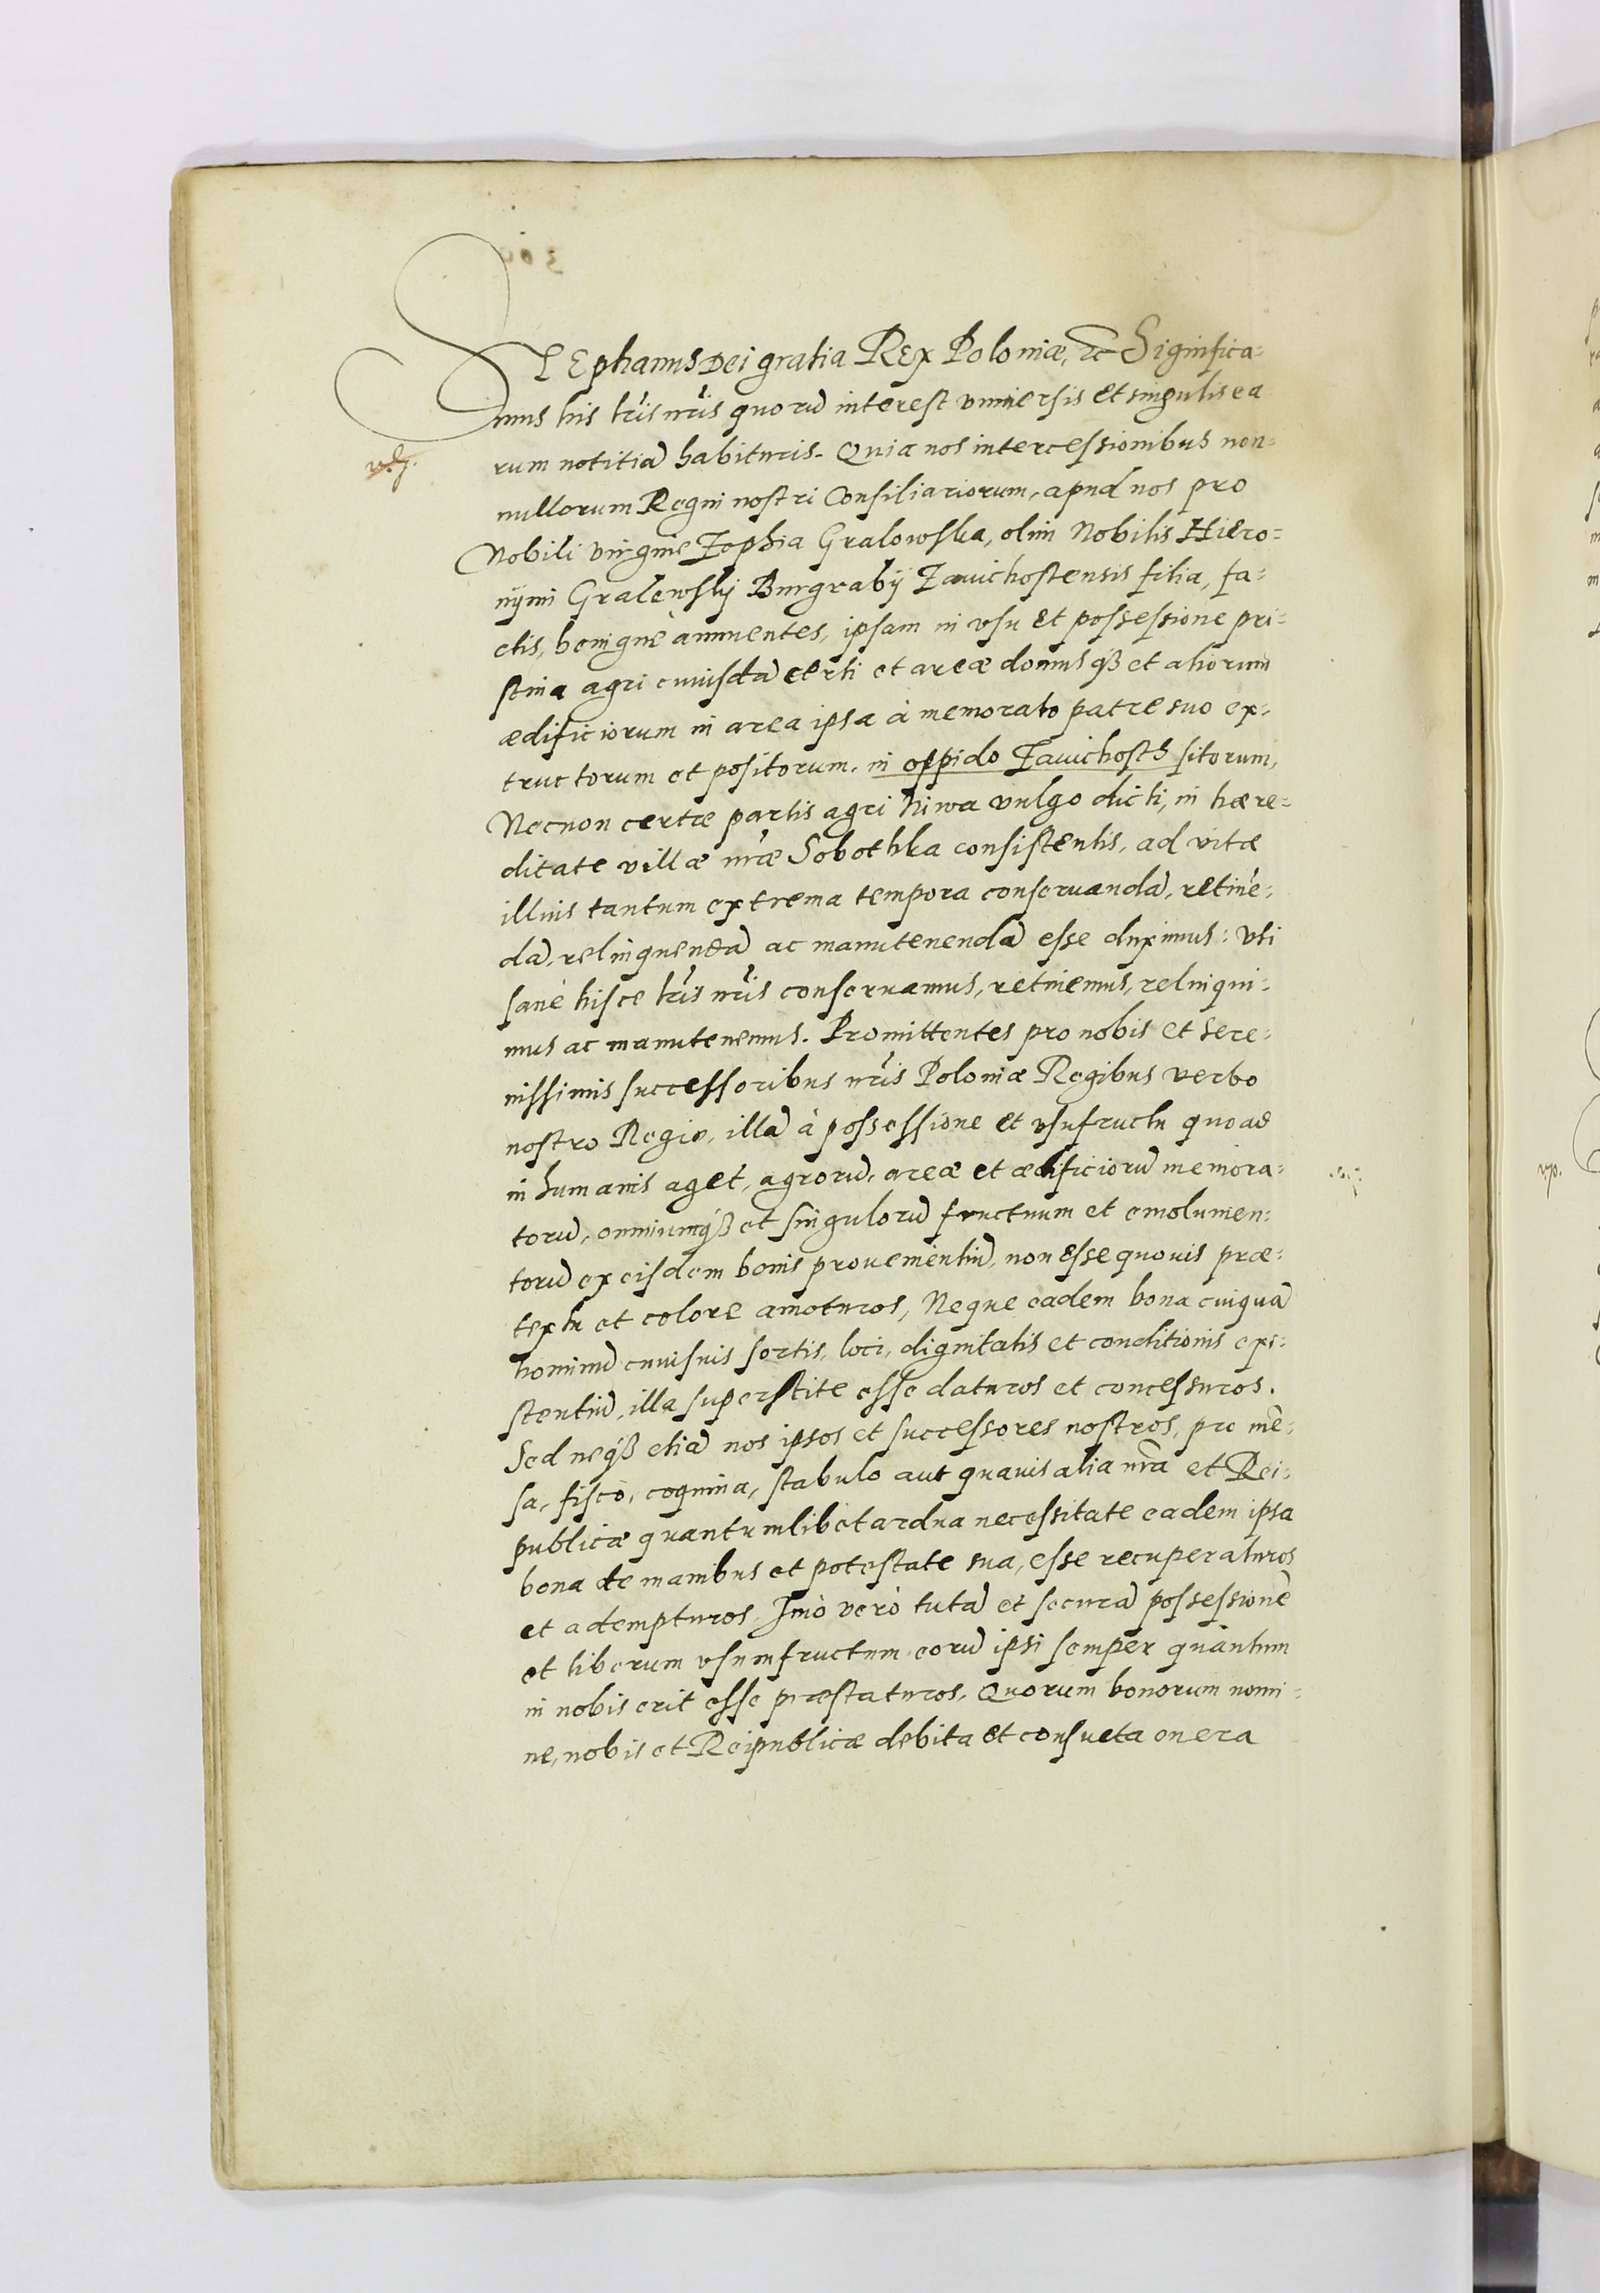 STEphanus Dei gratia REx Poloniæ, &c Significa-
mus his lr̃is nr̃is quorũ interest vniuersis et singulis ea
rum notitiã habituris. Quia nos intercessionibus non-
nullorum Regni nostri Consiliariorum, apud nos pro
Nobili virgine Zophia Gralowska, olim Nobilis Hiero-
nijmi Gralewskij Burgrabij Zawichostensis filia, fa-
ctis, benignè annuentes, ipsam in vsu et possessione pri-
stina agri cuiusdã certi et areæ domusq₃ et aliorum
ædificiorum in area ipsa à memorato patre suo ex-
tructorum et positorum, in oppido Zauichosth sitorum,
Necnon certæ partis agri Niwa vulgo dicti, in hære-
ditate villæ nr̃æ Sobothka consistentis, ad vitæ
illius tantum extrema tempora conseruandã, retinẽ-
dã, relinquendã ac manutenendã esse duximus: Vti
sanè hisce lr̃is nr̃is conseruamus, retinemus, relinqui-
mus ac manutenemus. Promittentes pro nobis et Sere-
nissimis successoribus nr̃is Poloniæ Regibus verbo
nostro Regio, illã à possessione et vsufructu quoad
in humanis aget, agrorũ, areæ et ædificiorũ memora-
torũ, omniumq₃ et singulorũ fructuum et emolumen-
torũ ex eisdem bonis prouenientiũ, non esse quouis præ-
textu et colore amoturos, Neque eadem bona cuiquã
hominũ cuiusuis sortis, loci, dignitatis et conditionis exi-
stentiũ, illa superstite esse daturos et concessuros.
Sed neq₃ etiã nos ipsos et successores nostros, pro mẽ-
sa, fisco, coquina, stabulo aut quauis alia nr̃a et Rei-
publicæ quantumlibet ardua necessitate eadem ipsa
bona de manibus et potestate sua, esse recuperaturos
et adempturos. Imò verò tutã et securã possessionẽ
et liberum vsumfructum eorũ ipsi semper quantum
in nobis erit esse præstaturos. Quorum bonorum nomi-
ne, nobis et Reipublicæ debita et consueta onera